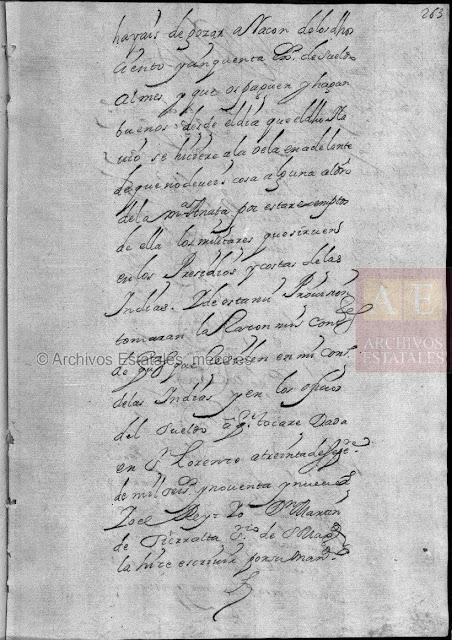 263
hayais de gozar a Raçon de los dhos
ciento y cinquenta es.s de sueldo
al mes y que os paguen y hagan
buenos desde el dia que el dho Na
uio se hiciere a la vela en adelante
de que no deueis cosa alguna al dro
de la m.a Anata por estar exemptos
de ella los militares que siruen
en los Presidios y costas de las
Indias. Y de esta mi Prouision
tomaran la Raçon mis Cont.es
de q.tas que Residen en mi Cons.o
de las Indias y en los oficios
del sueldo a q.n tocare Dada
en S.n Lorenço a treinta de
de mill seis.s y nouenta y nueue
Yo el Rey. Yo D.n Martin
de Sierralta s.rio de S Mag.d
la hice escriuir por su mand.o
© Archivos Estatales, mecd.es
AE
ARCHIVOS
ESTATALES